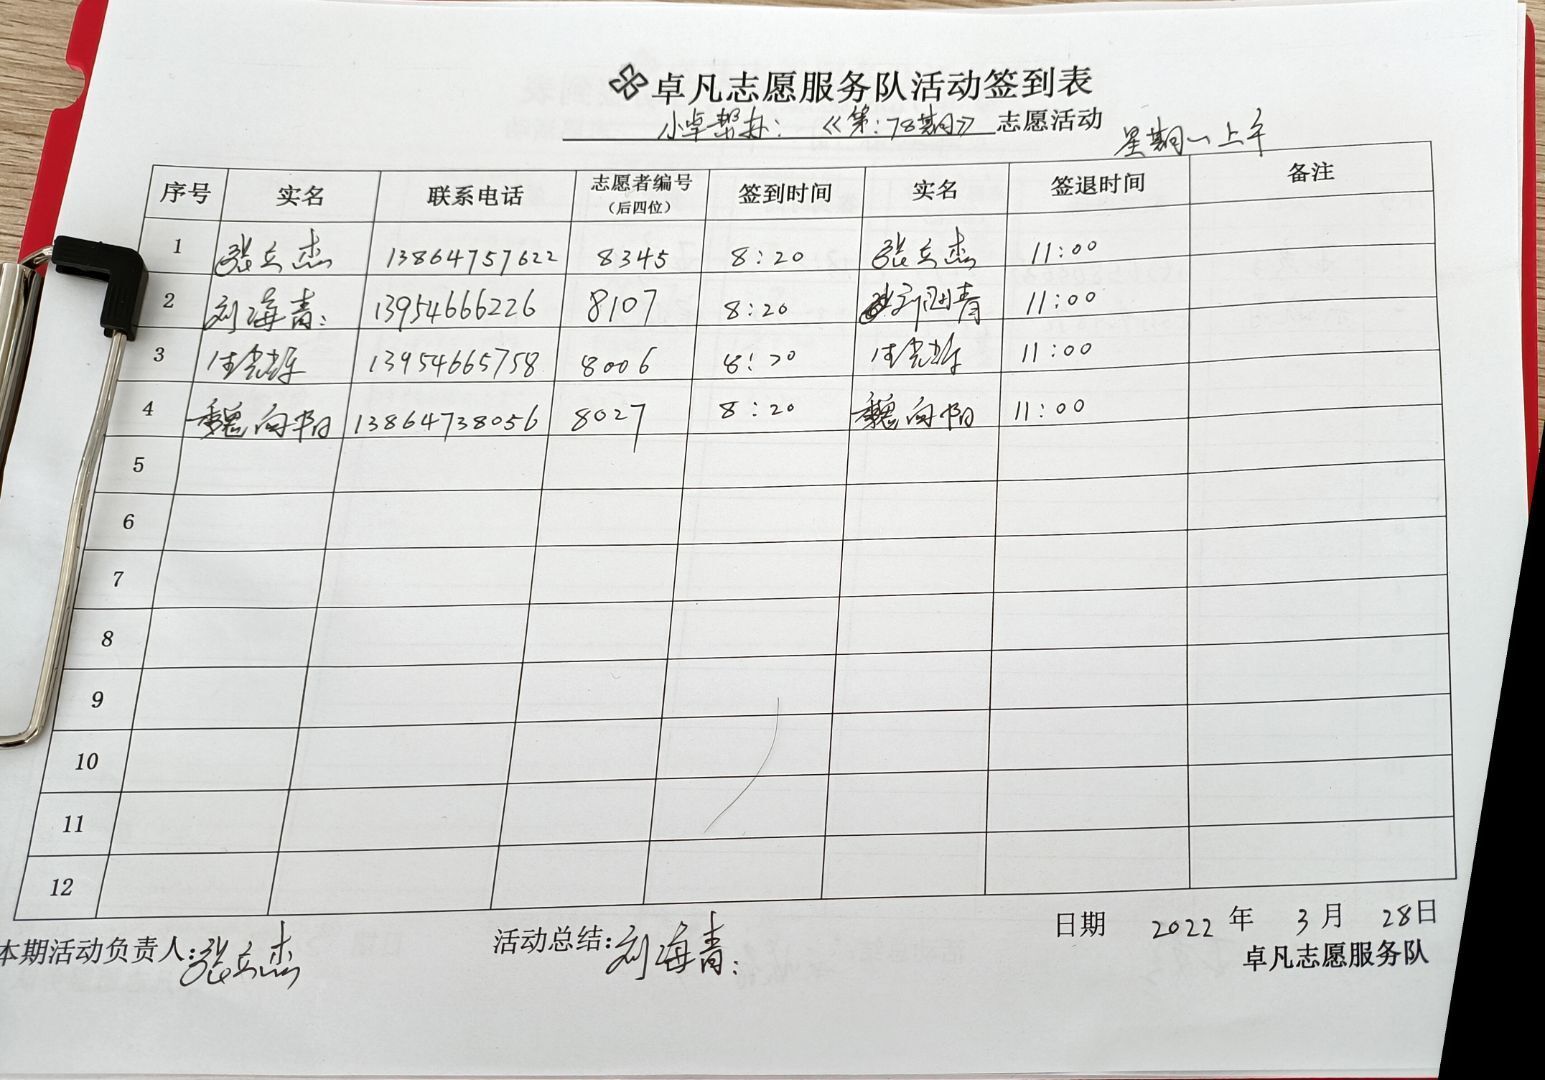 卓凡志愿服务队活动签到表
小卓帮办：《第：78期》 志愿活动
星期一上午
序号 实名 联系电话 志愿者编号（后四位） 签到时间 实名 签退时间 备注
1 张立杰 13864757622 8345 8:20 张立杰 11:00
2 刘海青： 13954666226 8107 8:20 刘海青 11:00
3 13954665758 8006 8:20 11:00
4 魏向阳 13864738056 8027 8:20 魏向阳 11:00
5
6
7
8
9
10
11
12
本期活动负责人：张立杰 活动总结：刘海青： 日期 2022 年 3 月 28日
卓凡志愿服务队